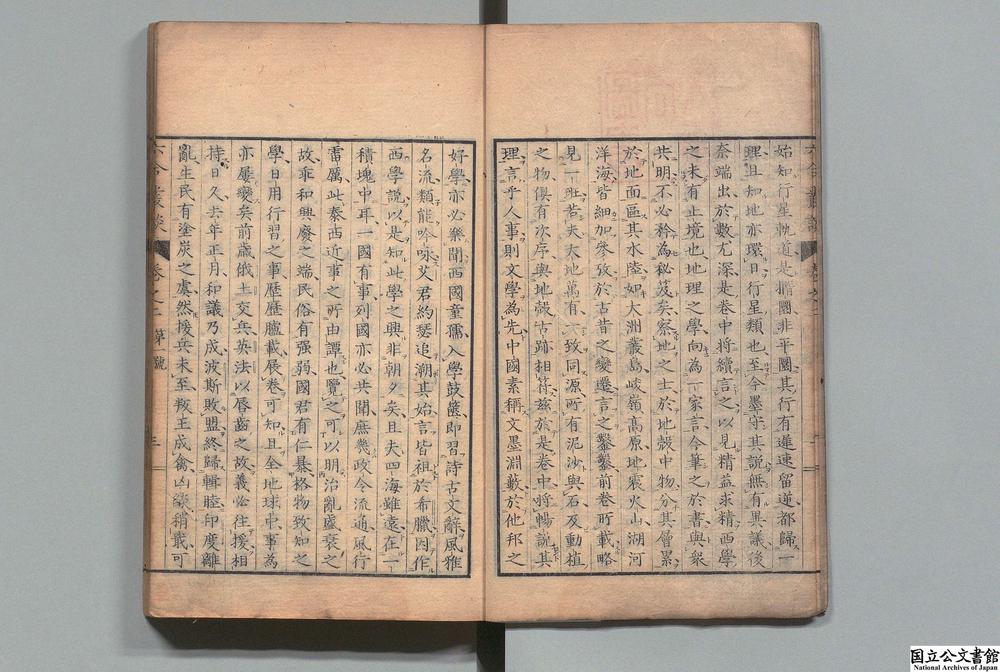 始知行星軌道是撱圜非平圜其行有遲速留逆都歸一
理且知地亦環日行星類也至今墨守其説無有異議後
奈端出於數尤深是卷中將續言之以見精益求精西學
之未有止境也地理之學向為一家言今筆之於書與衆
共明不必矜為秘笈矣察地之士於地殼中物分其層累
於地面區其水陸如大洲叢島峻嶺高原地震火山湖河
洋海皆細加參攷於古昔之變遷言之鑿鑿前卷所載略
見一斑蓋夫大地萬有一致同源所有泥沙與石及動植
之物俱有次序與地殼古跡相符兹於是卷中將暢説其
理言乎人事則文學為先中國素稱文墨淵藪於他邦之
六合叢談 卷之二 第 號 三
好學亦必樂聞西國童孺入學鼓篋即習詩古文辭風雅
名流類能吟咏艾君約瑟追溯其始言皆祖於希臘因作
西學説以是知此學之興非朝夕矣且夫四海雖遠在一
積塊中耳一國有事列國亦必共聞庶幾政令流通風行
雷厲此泰西近事之所由譚也覽之可以明治亂盛衰之
故乖和興廢之端民俗有强弱國君有仁暴格物致知之
學日用行習之事歷歷臚載展卷可知且全地球中事為
亦屢變矣前歲俄土交兵英法以唇齒之故義必往援相
持日久去年正月和議乃成波斯敗盟終歸輯睦印度離
亂生民有塗炭之虞然援兵未至叛王成禽凶燄稍戢可
国立公文書館
National Archives of Japan